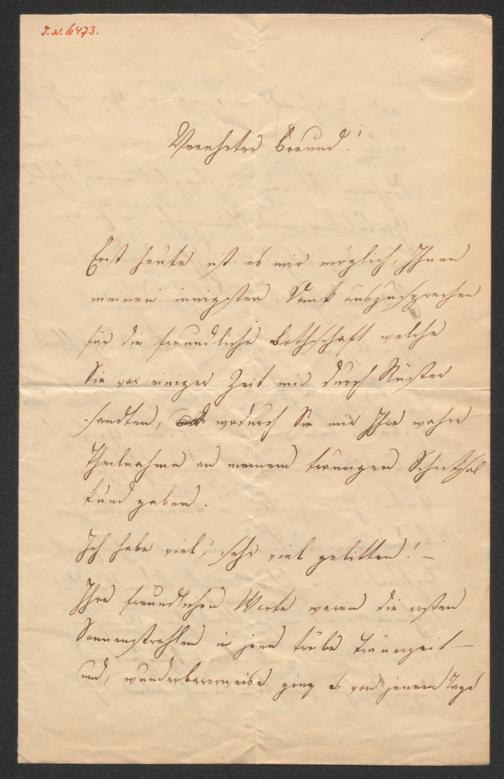 J.N. 6473.
Verehrter Freund!
Erst heute ist es mir möglich, Ihnen
meinen innigsten Dank auszusprechen
für die freundliche Bothschaft welche
Sie vor einiger Zeit mir durch
sandten, wodurch Sie mir Ihre wahre
Theilnahme an meinem traurigen Schicksal
kund gaben.
Ich habe viel, sehr viel gelitten! –
Ihre freundlichen Worte waren die ersten
Sonnenstrahlen in jene trübe Trauerzeit –
und, wunderbarerweise ging es von jenem Tage